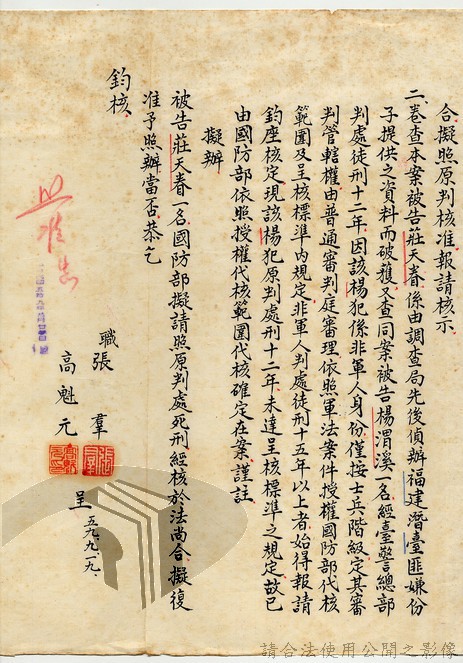 合擬照原判核准報請核示
二、卷查本案被告莊天眷係由調查局先後偵辦福建潛臺匪嫌份
子提供之資料而破獲又查同案被告楊渭溪一名經臺警總部
判處徒刑十二年因該楊犯係非軍人身份僅按士兵階級定其審
判管轄權由普通審判庭審理依照軍法案件授權國防部代核
範圍及呈核標準內規定非軍人判處徒刑十五年以上者始得報請
鈞座核定現該楊犯原判處刑十二年未達呈核標準之規定故已
由國防部依照授權代核範圍代核確定在案謹註
擬辦
被告莊天眷一名國防部擬請照原判處死刑經核於法尚合擬復
准予照辦當否恭乞
鈞核
職張羣
高魁元
呈五九、九、九、
請合法使用公開之影像